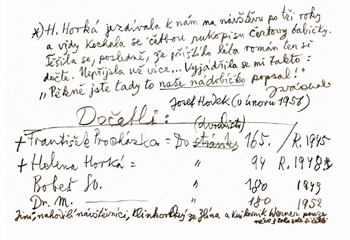 *) H. Horká jezdívala k nám na návštěvu po tři roky
a vždy kochala se četbou rukopisu čertovy babičky.
Těšila se, posledně, že příštího léta román ten si
dočte. Nepřijela už více... Vyjádřila se mi takto:
„Pěkně jste tady to naše nádobíčko popsal!"
Josef Hodek (v únoru 1956)
Dočetli:
(do str.)
+ František Procházka = Do stránky 165. / R. 1945
+ Helena Horká = " 94 R. 1948*
Bobeš St. " 180 1949
Dr. M. " 180 1952
Jiní, nahodilí návštěvníci, Klinkovský ze Zlína a Werner pouze